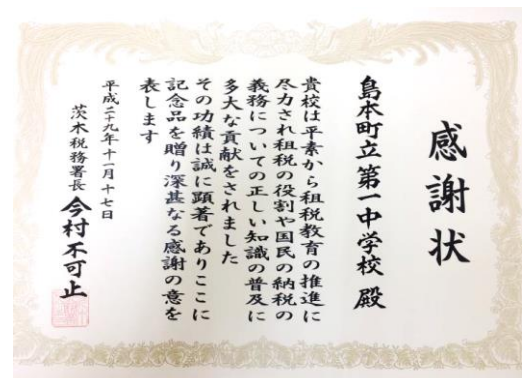 感謝状
島本町立第一中学校 殿
貴校は平素から租税教育の推進に
尽力され租税の役割や国民の納税の
義務についての正しい知識の普及に
多大な貢献をされました
その功績は誠に顕著でありここに
記念品を贈り深甚なる感謝の意を
表します
平成二十九年十一月十七日
茨木税務署長 今村不可止